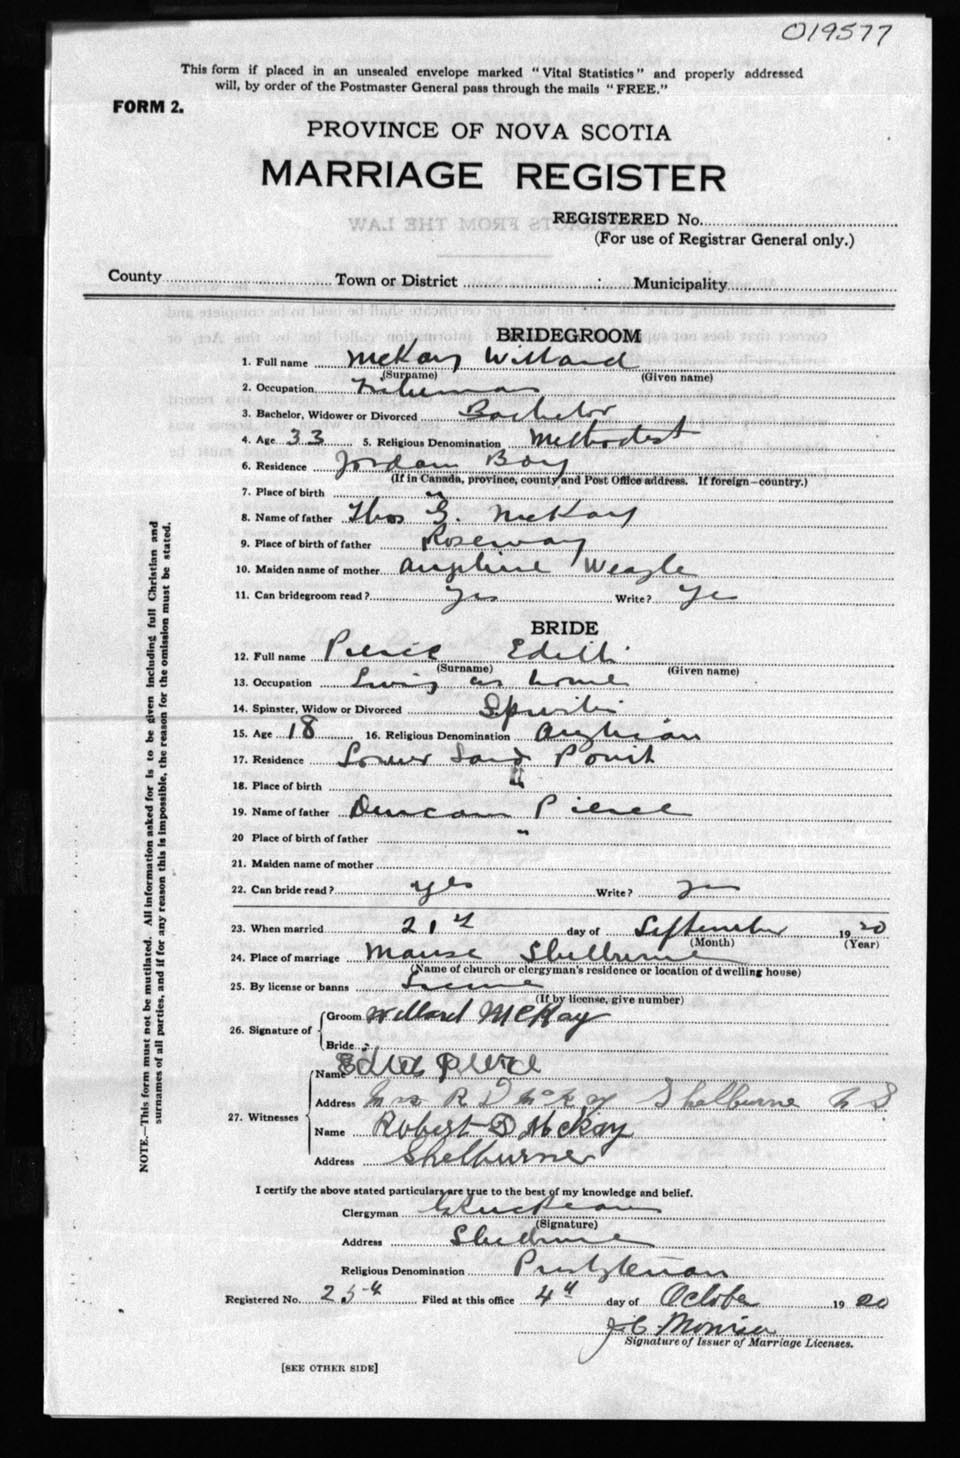 019577
This form if placed in an unsealed envelope marked "Vital Statistics" and properly addressed
will, by order of the Postmaster General pass through the mails "FREE."
FORM 2.
PROVINCE OF NOVA SCOTIA
MARRIAGE REGISTER
REGISTERED No.
(For use of Registrar General only.)
County Town or District Municipality
BRIDEGROOM
1. Full name McKay Willard
(Surname) (Given name)
2. Occupation Fisherman
3. Bachelor, Widower or Divorced Bachelor
4. Age 33 5. Religious Denomination Methodist
6. Residence Jordan Bay
(If in Canada, province, county and Post Office address. If foreign—country.)
7. Place of birth "
8. Name of father Thos G. McKay
9. Place of birth of father Roseway
10. Maiden name of mother Angeline Weagle
11. Can bridegroom read? Yes Write? Yes
BRIDE
12. Full name Pierce Edith
(Surname) (Given name)
13. Occupation Living at home
14. Spinster, Widow or Divorced Spinster
15. Age 18 16. Religious Denomination Anglican
17. Residence Lower Sand Point
18. Place of birth "
19. Name of father Duncan Pierce
20 Place of birth of father "
21. Maiden name of mother
22. Can bride read? yes Write? yes
23. When married 21st day of September 1920
(Month) (Year)
24. Place of marriage Manse Shelburne
(Name of church or clergyman's residence or location of dwelling house)
25. By license or banns License
(If by license, give number)
26. Signature of Groom Willard McKay
Bride
Edith Pierce
27. Witnesses Name
Address Mrs R D McKay Shelburne N S
Name Robert D McKay
Address Shelburne
I certify the above stated particulars are true to the best of my knowledge and belief.
Clergyman
(Signature)
Address Shelburne
Religious Denomination Presbyterian
Registered No. 254 Filed at this office 4th day of October 1920
J.C.
Signature of Issuer of Marriage Licenses.
[SEE OTHER SIDE]
NOTE.—This form must not be mutilated. All information asked for is to be given including full Christian and
surnames of all parties, and if for any reason this is impossible, the reason for the omission must be stated.